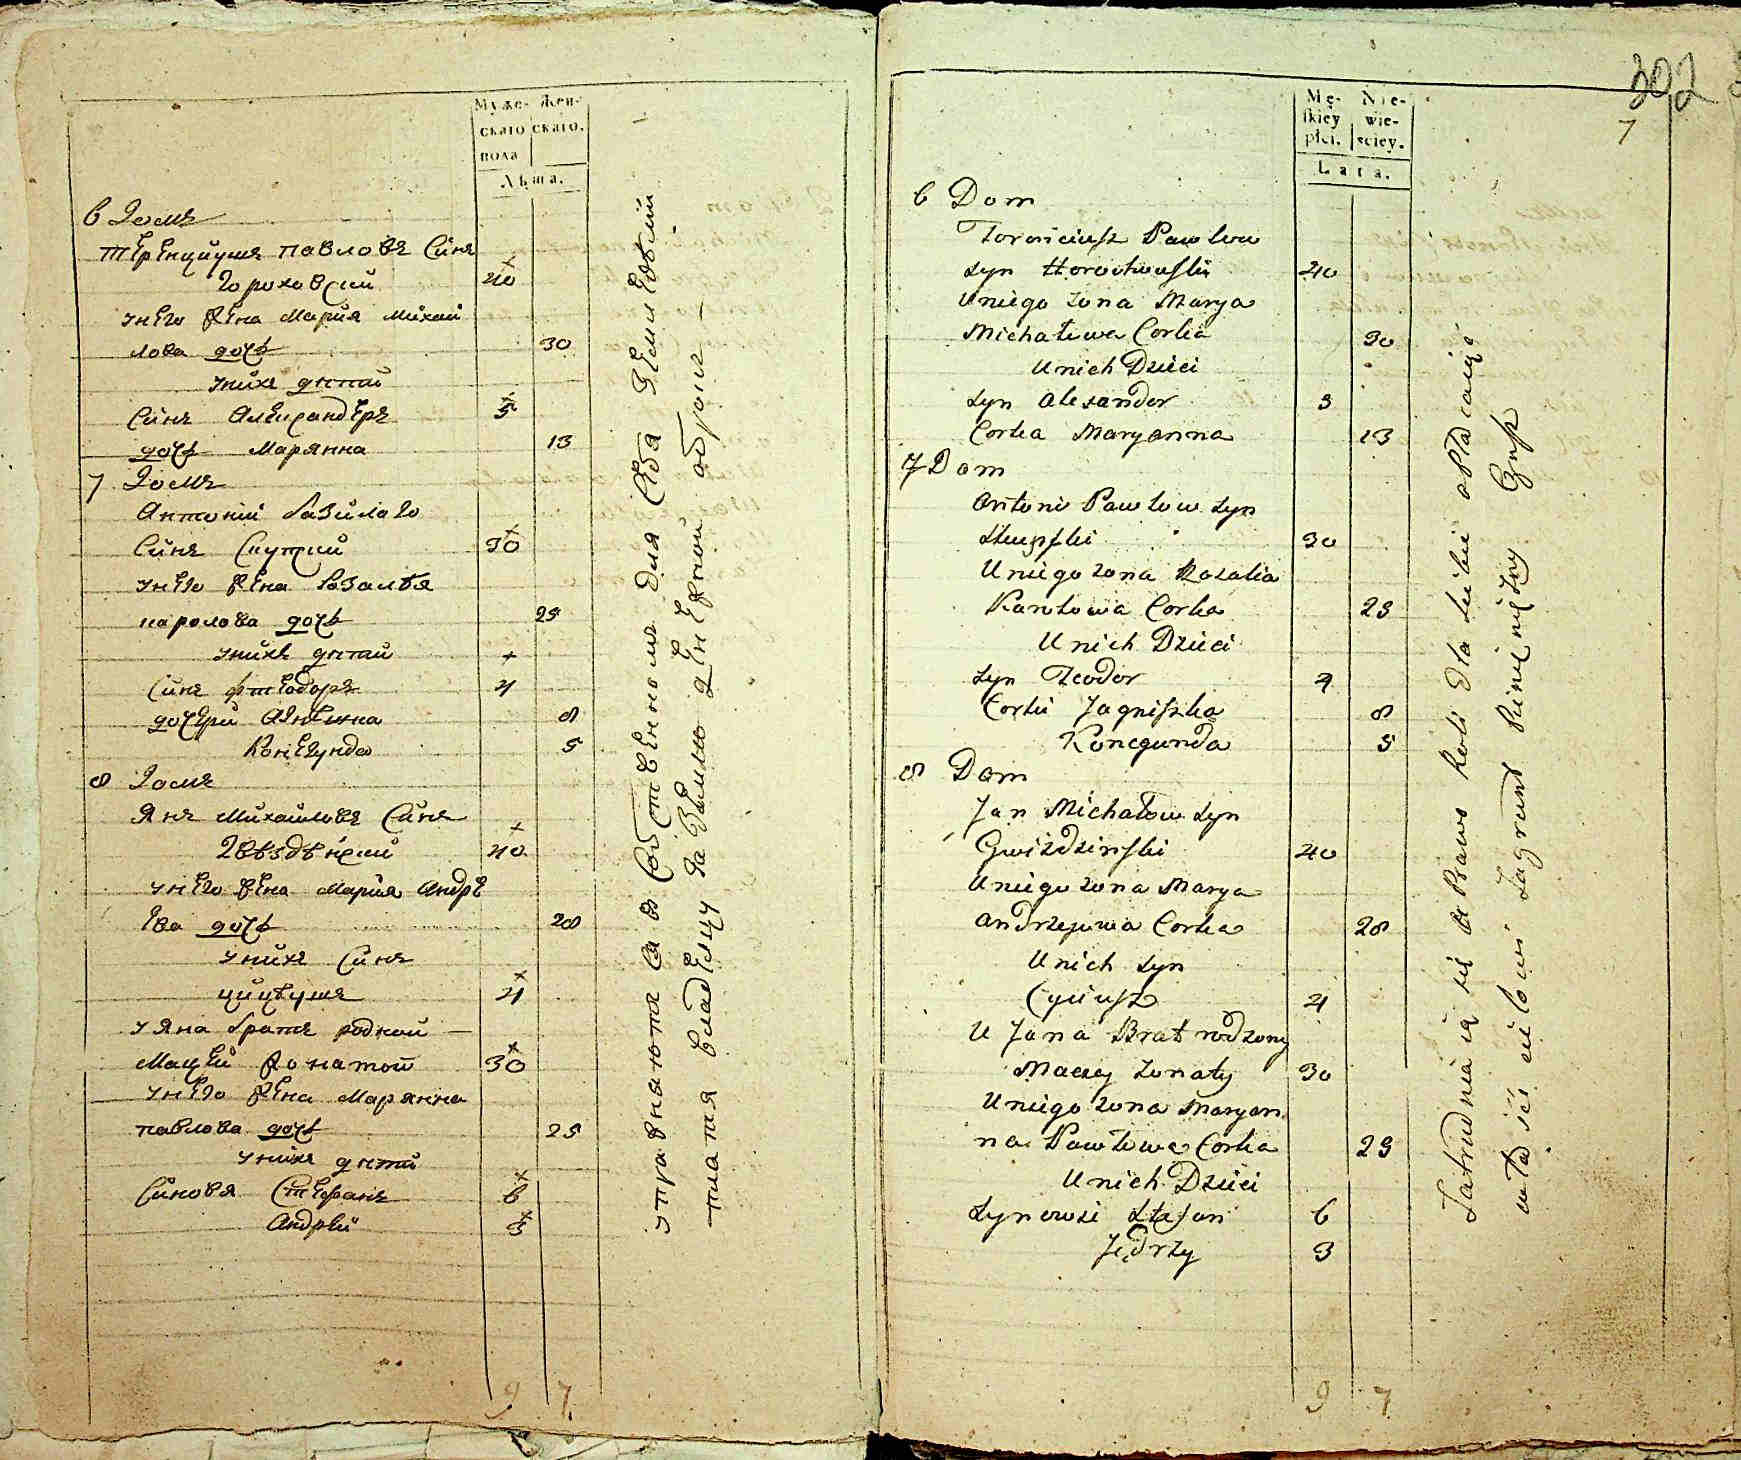 Муже- Жен-
скаго скаго.
пола
Лѣта.
6 Домъ
Терентиушъ Павловъ Синъ
Гороховский 40
унего жена Мария Михай
лова дочь 30
унихъ дѣтей
Синъ Александеръ 5
дочь Марянна 13
7 Домъ
Антоний
Синъ 30
унего жена Розалія
каролова дочь 25
унихъ дѣтей
Синъ Фтеодоръ 4
дочери 8
Конегунда 5
8 Домъ
Янъ Михайловъ Синъ
Звѣздѣнский 40
унего жена Мария Андре
ева дочь 28
унихъ Синъ
4
у Яна братъ родной
Мацей жонатой 30
унего жена Марянна
павлова дочь 25
унихъ дѣтей
Синовя Стефанъ 6
Андрей 3
9 7
упражняются для Себа
платя владелцу
302
7
Mę- Nie-
skiey wie-
płci. sciey.
Lata.
6 Dom
Pawłow
syn Horochowski 40
Uniego zona Marya
Michałowa Corka 30
Unich Dzieci
Syn Alexander 5
Corka Maryanna 13
7 Dom
Antoni Pawłow syn
30
Uniego zona Rozalia
Karolowa Corka 25
Unich Dzieci
Syn Teodor 4
Corki Jagniszka 8
Konegunda 5
8 Dom
Jan Michałow syn
Gwizdzinski 40
Uniego zona Marya
Andrzejowa Corka 28
Unich syn
4
U Jana Brat rodzony
Maciey zonaty 30
Uniego zona Maryan
na Pawłowa Corka 25
Unich Dzieci
Synowie Stefan 6
Jędrzy 3
9 7
Zatrudniaią się Roli dla siebie opłacaiąc
właścicielowi Zagrunt Pieniężny Czynsz